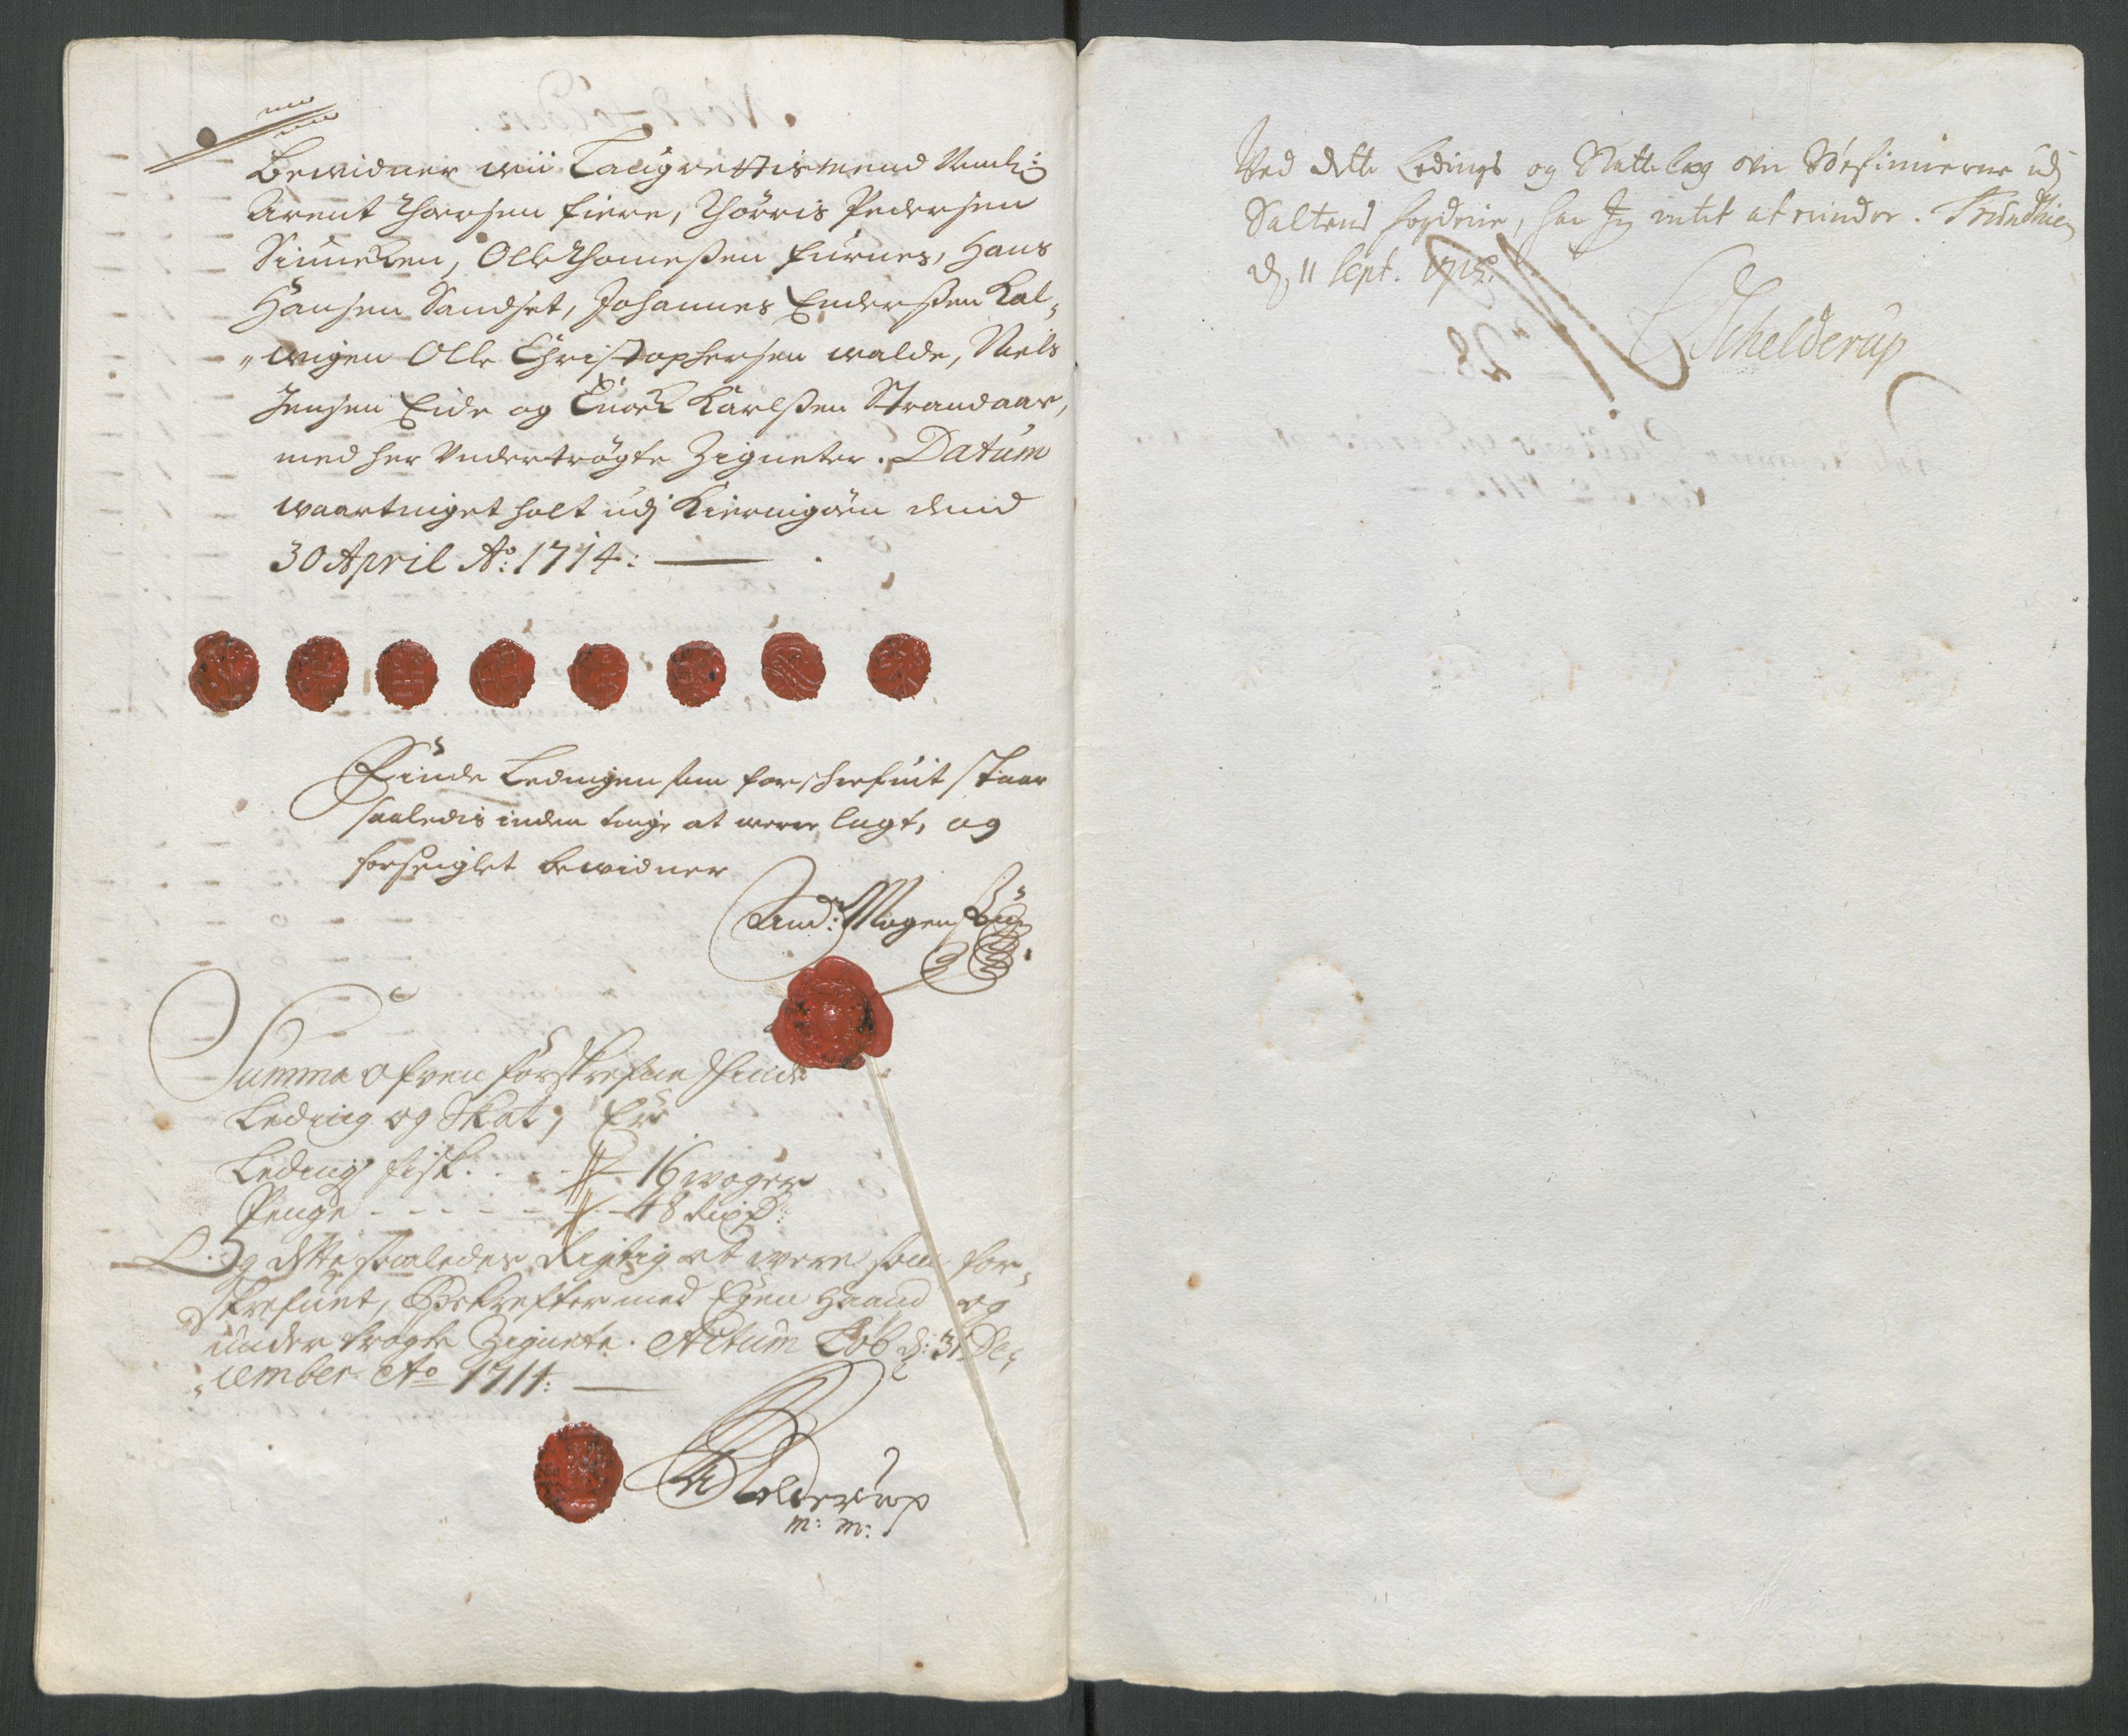 Bewidner wii Laugrettismend Nembl:
Arent Thorsen fiere, Thörris Pedersen
Olle Thomeßen furnes, Hans
Hansen Sandset, Johannes Enderßen Kal-
"wigen Olle Christophersen walde, Niels
Jensen Eide og Enoch Karlßen Strandaae,
med her Vndertrögte Zigneter. Datum
waartinget holt udj Kierringöen dend
30 April Ao: 1714:
Finde Ledingen som forschrefuit staar
saaledis inden tinge at were lagt, og
forseiglet bewidner
And: Mogens
Summa ofven forskrefne Finde
Leding og Skat, Er
Ledings fisk . . . 16 woger
Penge - - - - - 48 Rixd:
Og dette saaledes Rigtig at were som for-
skrefuet, Bekrefter med Egen Haand og
under trögte Zignete. Actum d: 31 De-
"cember Ao 1714:
Schelderup
m: m:
Ved dette Ledings og Skattelæg over Söefinnerne udj
Saltens fogderie, har Jeg intet at erindre. Trundhiem
d. 11 Sept. 1715.
Schelderup